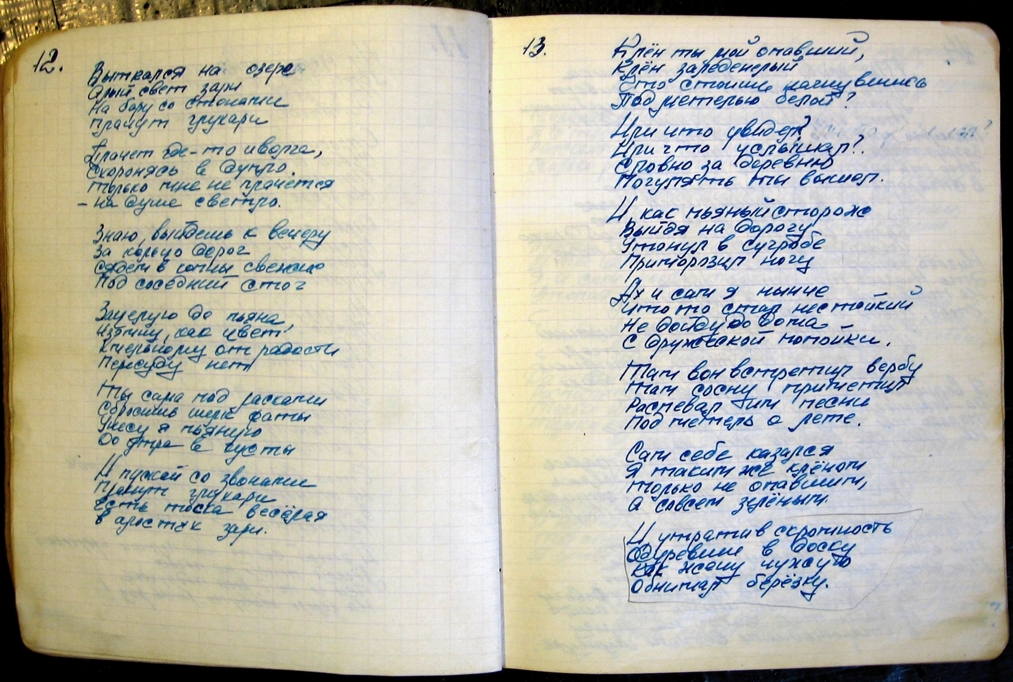 12.
Выткался на озере
Алый свет зари
На бору со стонами
Плачут глухари
Плачет где-то иволга,
Схоронясь в дупло.
Только мне не плачется
- на душе светло.
Знаю, выйдешь к вечеру
За кольцо дорог
Сядем в копны свежие
Под соседний стог
Зацелую до пьяна
Изомну, как цвет!
Хмельному от радости
Пересуду нет
Ты сама под ласками
Сбросишь шёлк фаты
Унесу я пьяную
До утра в кусты
И пускай со звонами
Плачут глухари
Есть тоска весёлая
В алостях зари.
13.
Клён ты мой опавший,
Клён заледенелый
Что стоишь нагнувшись
Под метелью белой?
Или что увидел?
Или что услышал?
Словно за деревню
Погулять ты вышел.
И, как пьяный сторож
Выйдя на дорогу
Утонул в сугробе
Приморозил ногу
Ах и сам я нынче
Что то стал нестойкий
Не дойду до дома
С дружеской попойки.
Там вон встретил вербу
Там сосну приметил
Распевал им песни
Под метель о лете.
Сам себе казался
Я таким же клёном
Только не опавшим,
А совсем зелёным.
И утратив скромность
Одуревши в доску
Как жену чужую
Обнимал берёзку.